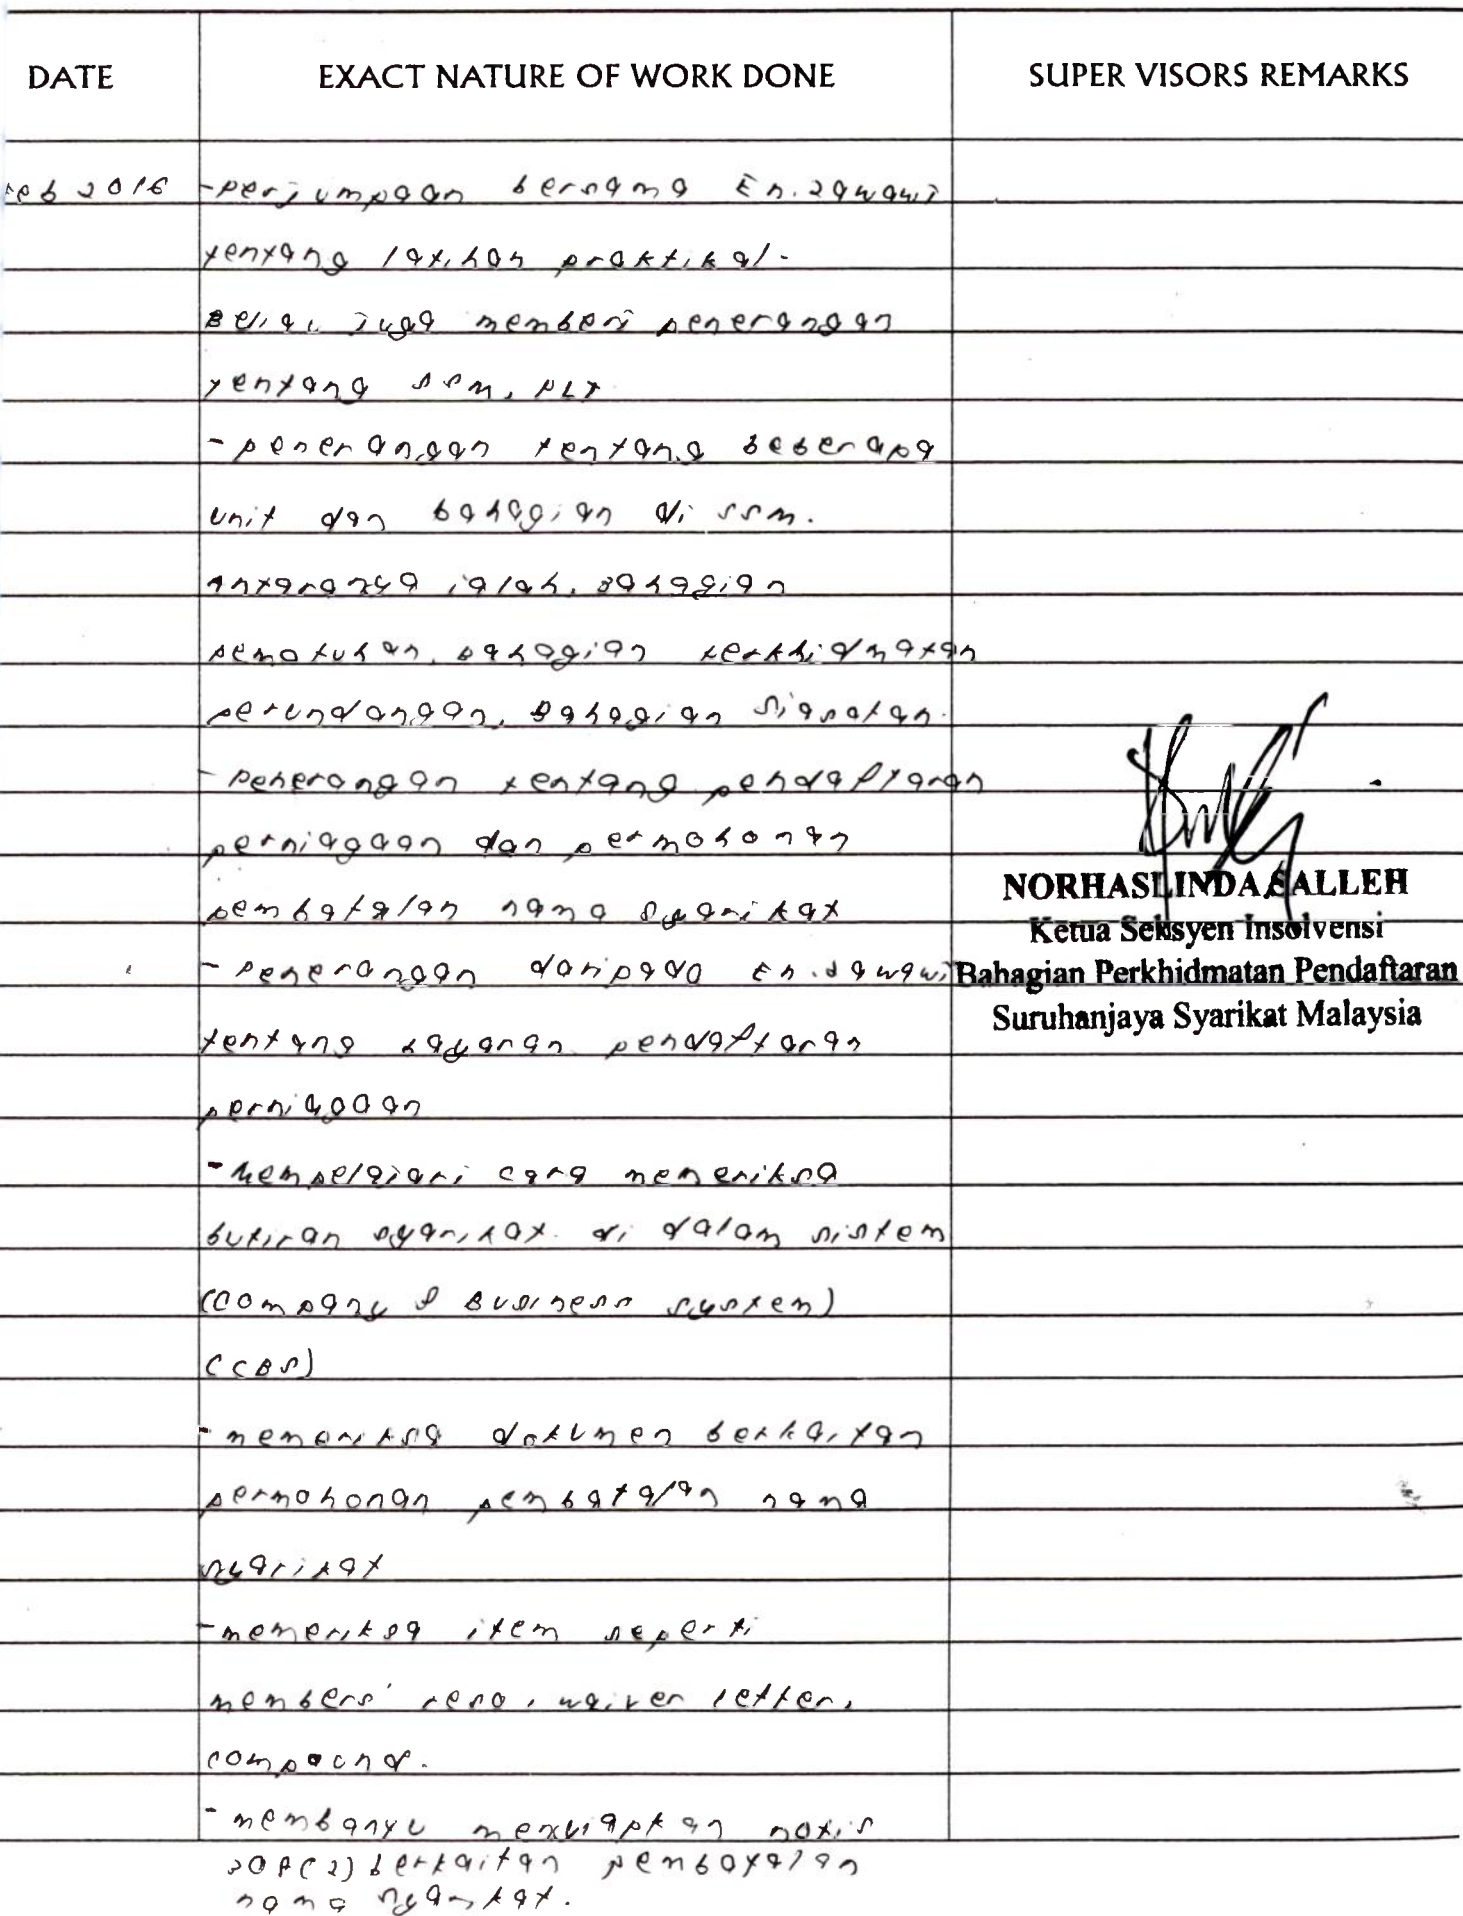 DATE EXACT NATURE OF WORK DONE SUPER VISORS REMARKS
eb 2016 - perjumpaan bersama En. Zawawi
tentang latihan praktikal.
Beliau juga memberi penerangan
tentang SSM, PLT
- penerangan tentang beberapa
unit dan bahagian di SSM.
Antaranya ialah, Bahagian
pematuhan, Bahagian perkhidmatan
perundangan, Bahagian siasatan.
- Penerangan tentang pendaftaran
perniagaan dan permohonan
pembatalan nama syarikat
- Penerangan daripada En. Zawawi
tentang bayaran pendaftaran
perniagaan
- Mempelajari cara memeriksa
butiran syarikat di dalam sistem
(Company & Business system)
(CCBS)
- memeriksa dokumen berkaitan
permohonan pembatalan nama
syarikat
- memeriksa item seperti
members' reso, waiver letter,
compound.
- membantu menyiapkan notis
308(2) berkaitan pembatalan
nama syarikat.
NORHASLINDA SALLEH
Ketua Seksyen Insolvensi
Bahagian Perkhidmatan Pendaftaran
Suruhanjaya Syarikat Malaysia